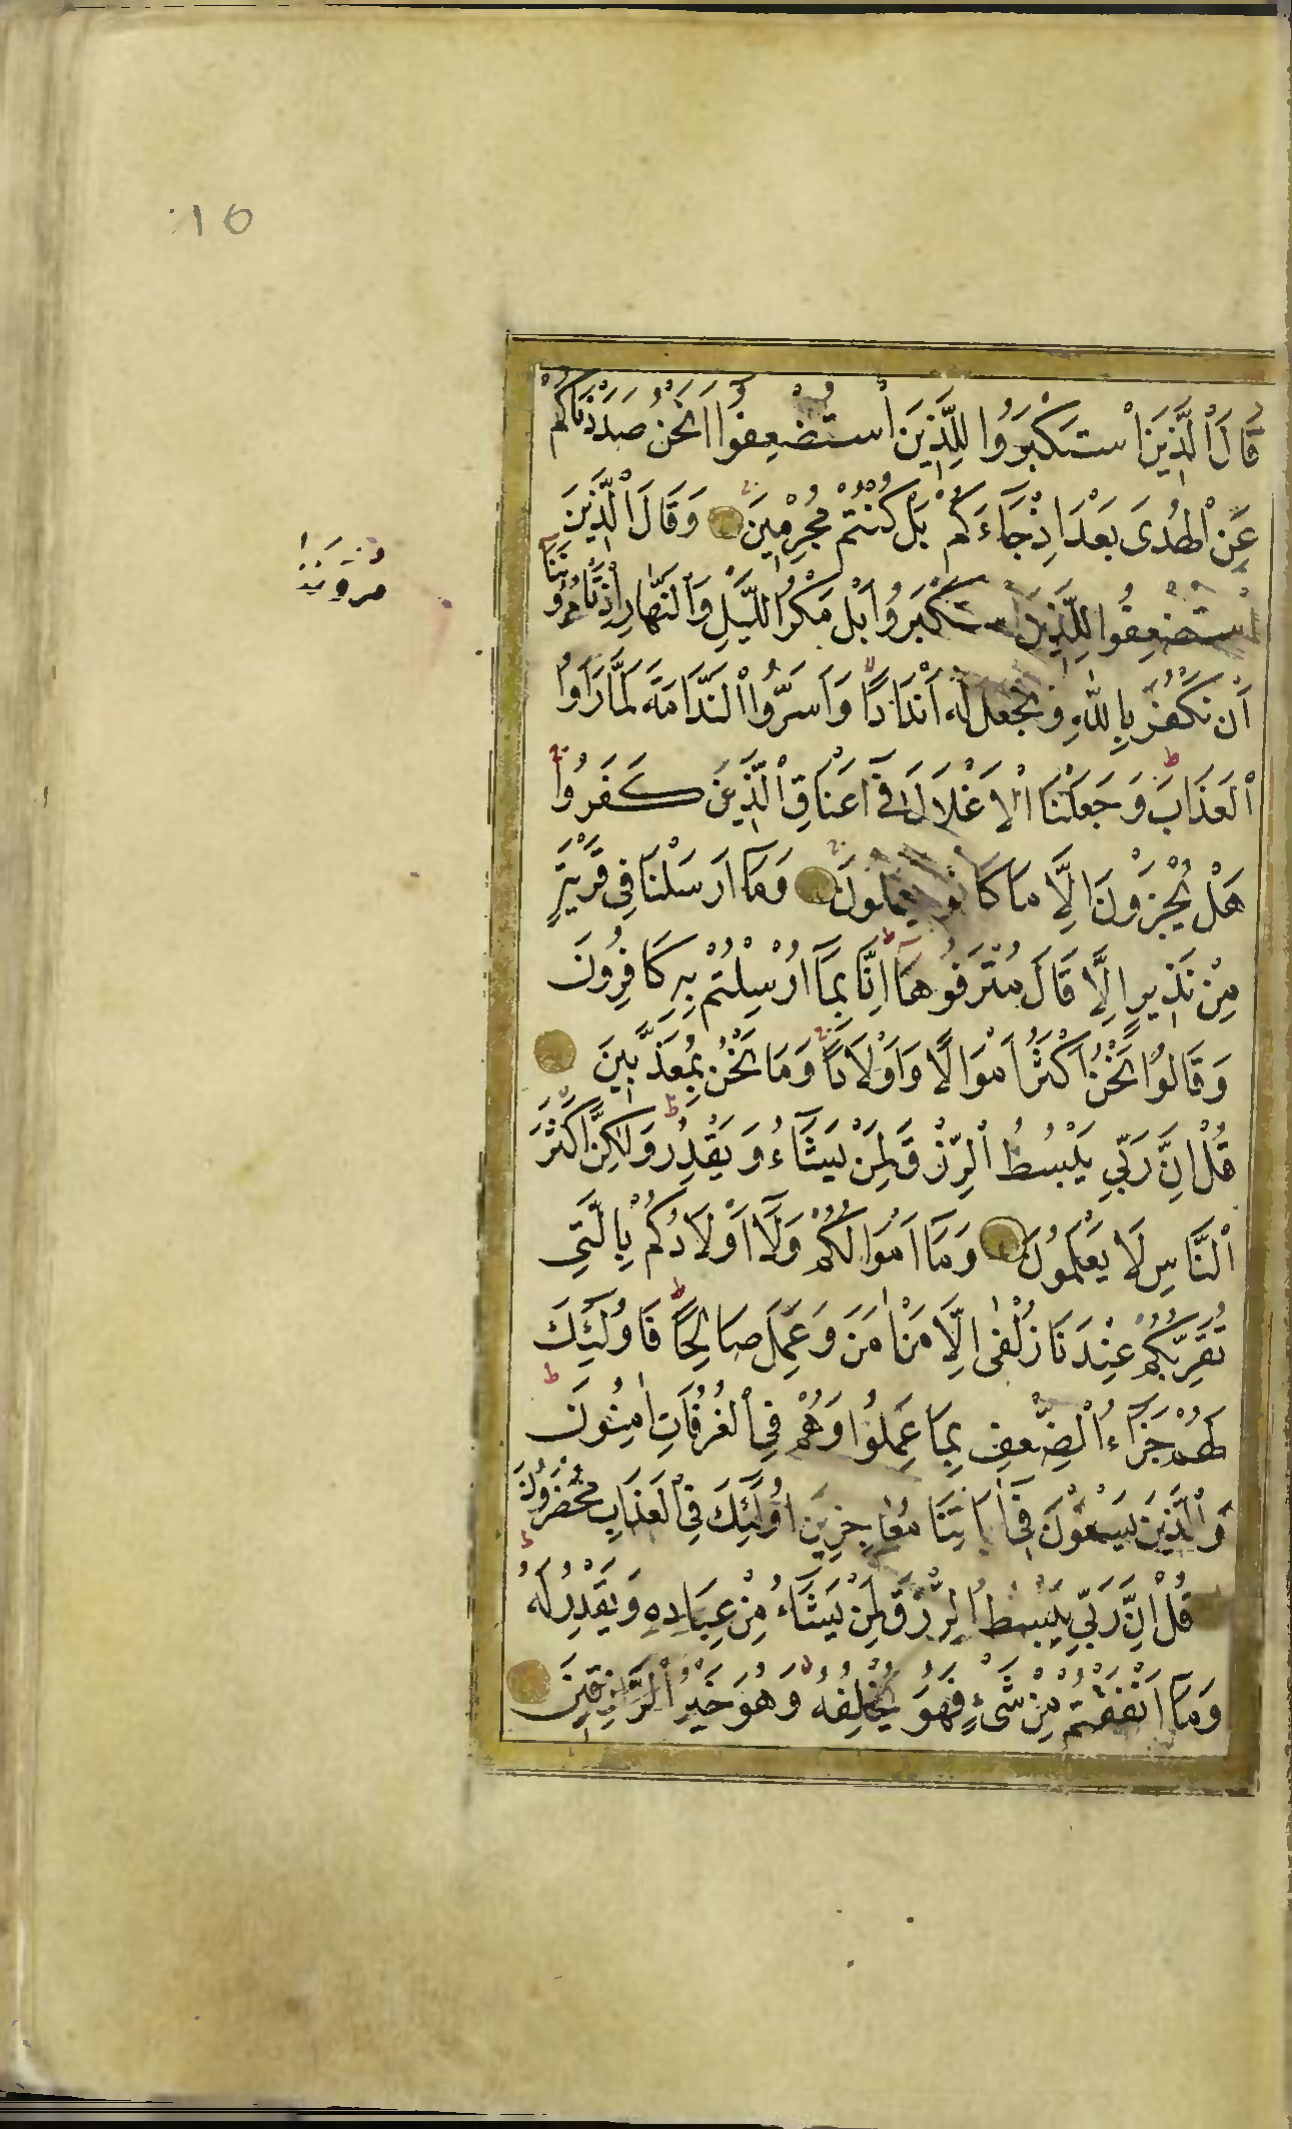 :١٥
قَالَ الَّذِينَ اسْتَكْبَرُوا لِلَّذِينَ اسْتُضْعِفُوا اَنَحْنُ صَدَدْنَاكُمْ
عَنِ الْهُدَى بَعْدَ اِذْ جَاءَكُمْ بَلْ كُنْتُمْ مُجْرِمِينَ وَقَالَ الَّذِينَ
اسْتُضْعِفُوا لِلَّذِينَ اسْتَكْبَرُوا بَلْ مَكْرُ اللَّيْلِ وَالنَّهَارِ اِذْ تَأْمُرُونَنَا
اَنْ نَكْفُرَ بِاللّٰهِ وَنَجْعَلَ لَهُ اَنْدَادًا وَاَسَرُّوا النَّدَامَةَ لَمَّا رَاَوُا
الْعَذَابَ وَجَعَلْنَا الْاَغْلَالَ فِٓي اَعْنَاقِ الَّذِينَ كَفَرُوا
هَلْ يُجْزَوْنَ اِلَّا مَا كَانُوا يَعْمَلُونَ وَمَٓا اَرْسَلْنَا فِي قَرْيَةٍ
مِنْ نَذِيرٍ اِلَّا قَالَ مُتْرَفُوهَٓا اِنَّا بِمَٓا اُرْسِلْتُمْ بِهِ كَافِرُونَ
وَقَالُوا نَحْنُ اَكْثَرُ اَمْوَالًا وَاَوْلَادًا وَمَا نَحْنُ بِمُعَذَّبِينَ
قُلْ اِنَّ رَبِّي يَبْسُطُ الرِّزْقَ لِمَنْ يَشَٓاءُ وَيَقْدِرُ وَلٰكِنَّ اَكْثَرَ
النَّاسِ لَا يَعْلَمُونَ وَمَٓا اَمْوَالُكُمْ وَلَٓا اَوْلَادُكُمْ بِالَّتِي
تُقَرِّبُكُمْ عِنْدَنَا زُلْفٰى اِلَّا مَنْ اٰمَنَ وَعَمِلَ صَالِحًا فَاُولٰٓئِكَ
لَهُمْ جَزَٓاءُ الضِّعْفِ بِمَا عَمِلُوا وَهُمْ فِي الْغُرُفَاتِ اٰمِنُونَ
وَالَّذِينَ يَسْعَوْنَ فِٓي اٰيَاتِنَا مُعَاجِزِينَ اُولٰٓئِكَ فِي الْعَذَابِ مُحْضَرُونَ
قُلْ اِنَّ رَبِّي يَبْسُطُ الرِّزْقَ لِمَنْ يَشَٓاءُ مِنْ عِبَادِهِ وَيَقْدِرُ لَهُ
وَمَٓا اَنْفَقْتُمْ مِنْ شَيْءٍ فَهُوَ يُخْلِفُهُ وَهُوَ خَيْرُ الرَّازِقِينَ